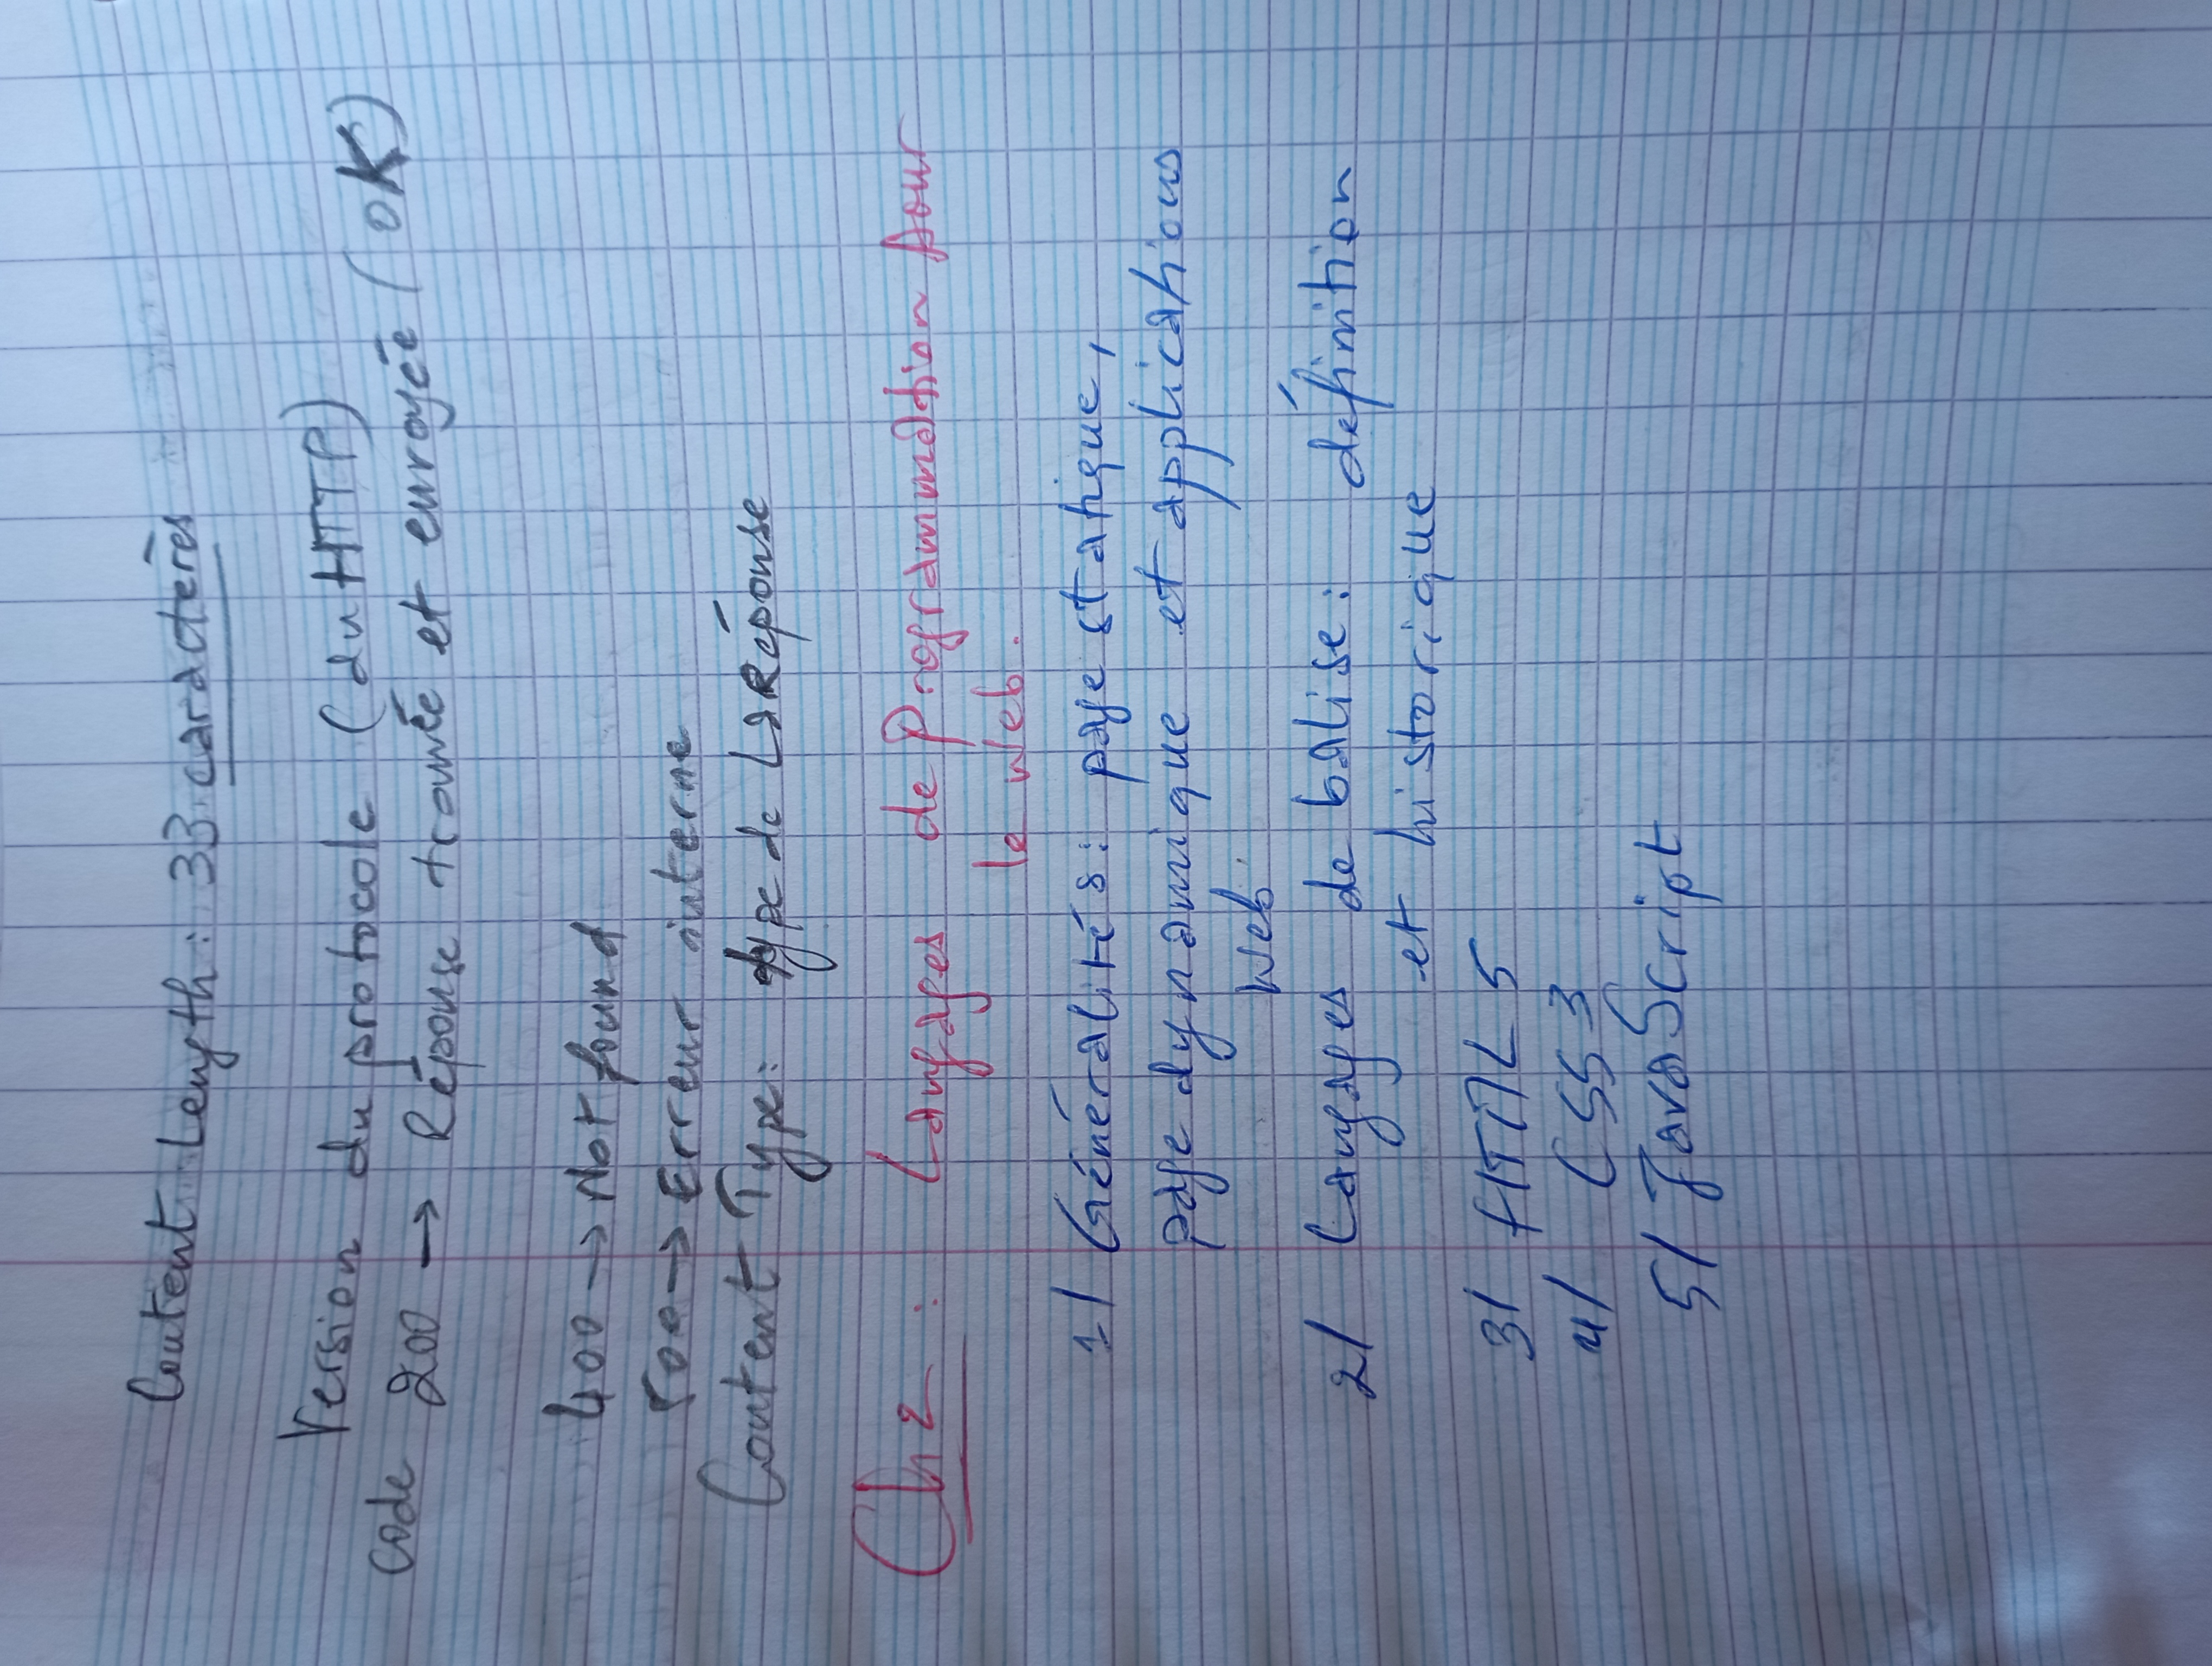 Content Length: 33 caractères
Version du protocole (du HTTP)
code 200 → Réponse trouvée et envoyée (OK)
400 → Not found
500 → Erreur interne
Content Type: type de la Réponse
Ch2 : Langages de Programmation pour
le web.
1/ Généralités: page statique,
page dynamique et applications
web
2/ Langages de balise: définition
et historique
3/ HTML 5
4/ CSS 3
5/ JavaScript